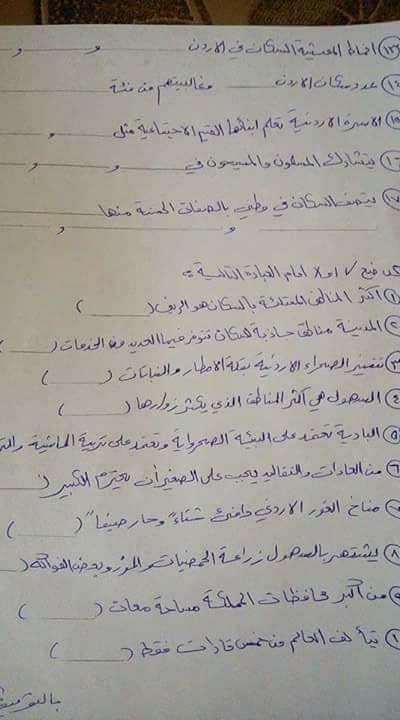 ١٣) انماط المعيشية السكان في الاردن ______ و ______ و ______
١٤) عدد سكان الاردن ______ وغالبيتهم من فئة ______
١٥) الاسرة الاردنية تعلم ابنائها القيم الاجتماعية مثل ______ و ______
١٦) يتشارك المسلمون والمسيحيون في ______ و ______ و ______
١٧) يتصف السكان في وطني بالصفات الحسنة منها ______
______ و ______ و ______
ضع √ او x امام العبارة التالية :-
١) أكثر المناطق المكتظة بالسكان هو الريف (______)
٢) المدينة مناطق جاذبة للسكان تتوفر فيها العديد من الخدمات (______)
٣) تتميز الصحراء الاردنية بقلة الامطار والنباتات (______)
٤) السهول هي أكثر المناطق الذي يكثر زوارها (______)
٥) البادية تعتمد على البيئة الصحراوية وتعتمد على تربية الماشية
٦) من العادات والتقاليد يجب على الصغير ان يحترم الكبير (______
٧) مناخ الغور الاردني دافئ شتاءً وحار صيفاً (______)
٨) يشتهر بالسهول زراعة الحمضيات والموز وبعض الفواكه (______
٩) من أكبر محافظات المملكة مساحة معان (______)
١٠) يتألف العالم من خمس قارات فقط (______)